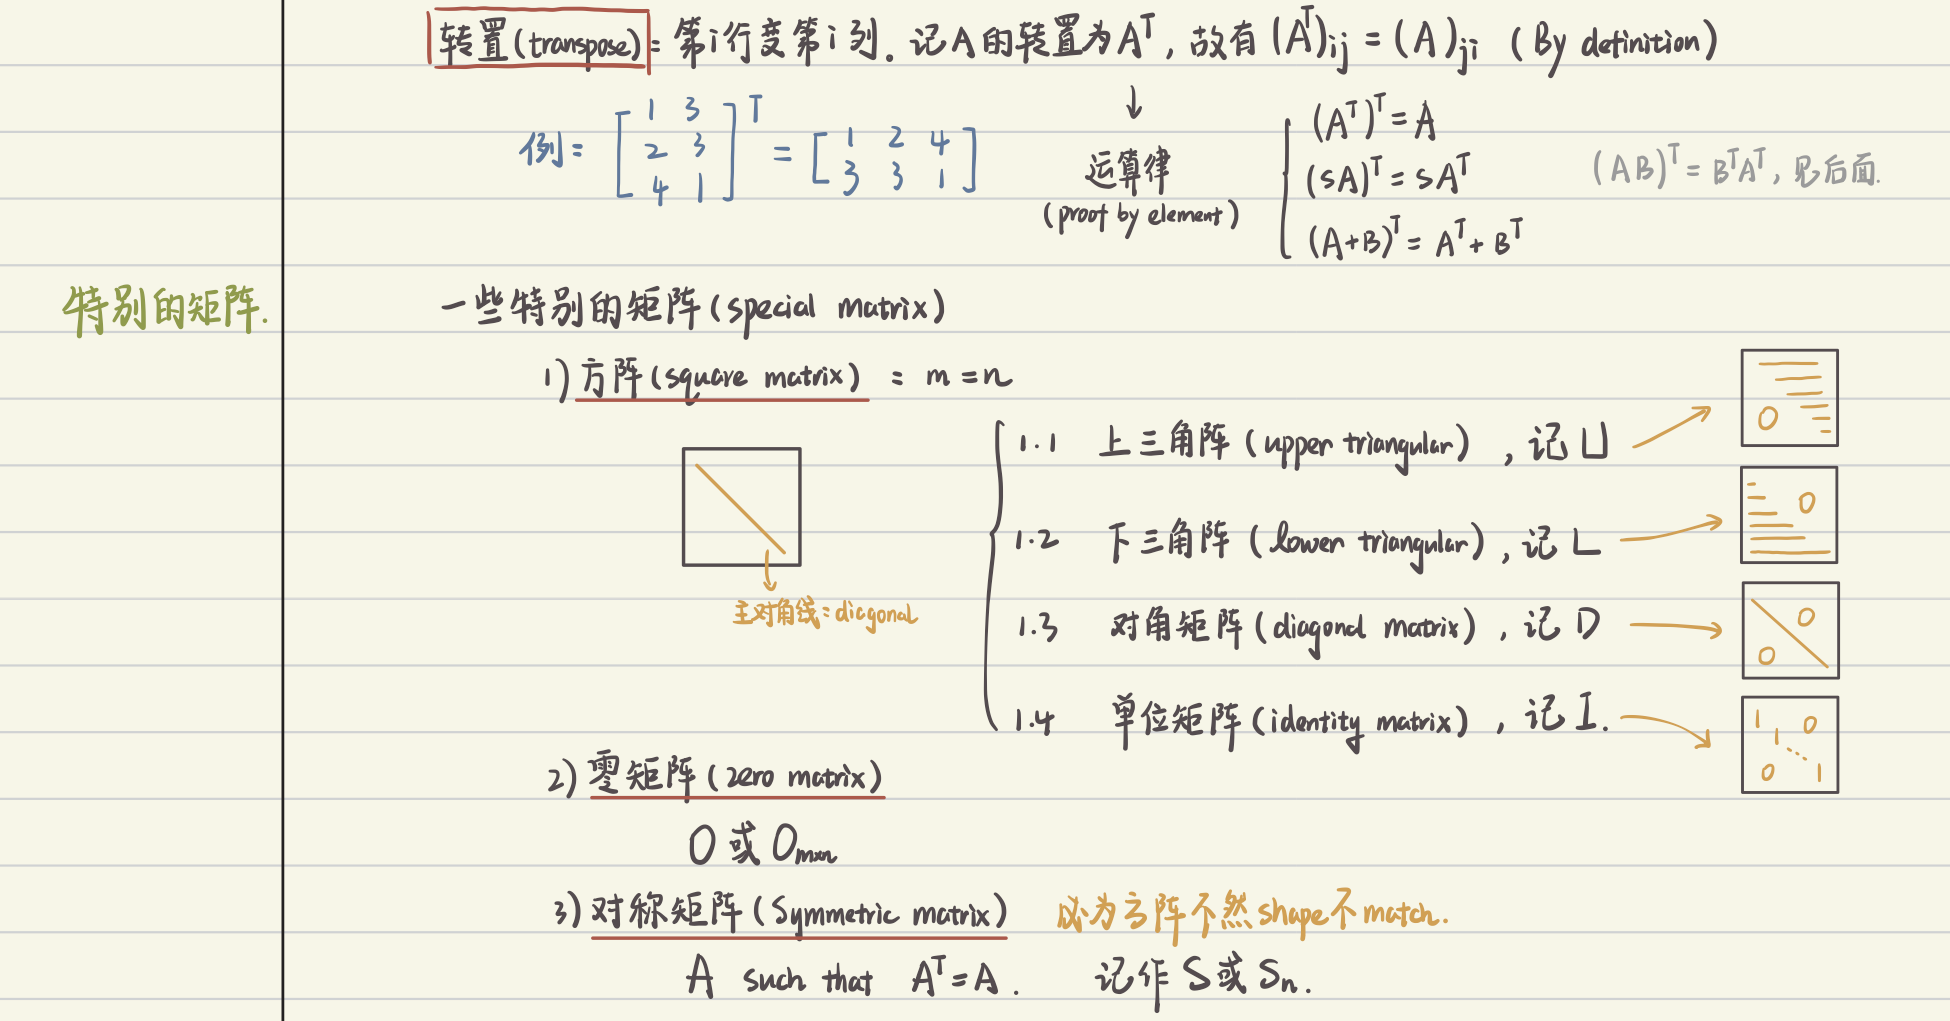 转置(transpose): 第i行变第i列. 记A的转置为Aᵀ, 故有 (Aᵀ)ij = (A)ji (By definition)
例: [1 3; 2 3; 4 1]ᵀ = [1 2 4; 3 3 1]
↓
运算律
(proof by element)
(Aᵀ)ᵀ = A
(sA)ᵀ = sAᵀ
(A+B)ᵀ = Aᵀ + Bᵀ
(AB)ᵀ = BᵀAᵀ, 见后面.
特别的矩阵.
一些特别的矩阵(special matrix)
1) 方阵(square matrix) : m = n
主对角线: diagonal
1.1 上三角阵(upper triangular), 记 U
0
1.2 下三角阵(lower triangular), 记 L
0
1.3 对角矩阵(diagonal matrix), 记 D
0
0
1.4 单位矩阵(identity matrix), 记 I.
1 0
1
0 1
2) 零矩阵(zero matrix)
O 或 Om×n
3) 对称矩阵(Symmetric matrix) 必为方阵不然shape不match.
A such that Aᵀ = A. 记作 S 或 Sn.